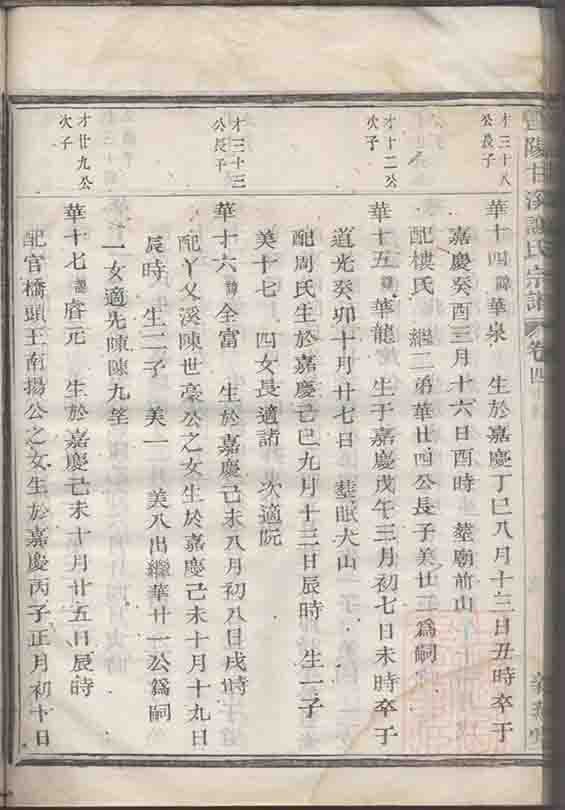 陽甘溪謝氏宗譜 卷四
才三十八
公長子
華十四 諱 華泉 生於嘉慶丁巳八月十三日丑時卒于
嘉慶癸酉三月十六日酉時 塟廟前山
配樓氏 繼二弟華廿四公長子美廿三爲嗣
才十二公
次子
華十五 諱 華龍 生于嘉慶戊午三月初七日未時卒于
道光癸卯十月廿七日 塟眠犬山
配周氏生於嘉慶己巳九月十三日辰時 生一子
美十七 四女長適諸 次適阮
才三十三
公長子
華十六 諱 全富 生於嘉慶己未八月初八日戌時
配丫乂溪陳世豪公之女生於嘉慶己未十月十九日
辰時 生二子 美一 美八出繼華廿一公爲嗣
一女適先陳陳九筌
才廿九公
次子
華十七 諱 睿元 生於嘉慶己未十月廿五日辰時
配官橋頭王南揚公之女生於嘉慶丙子正月初十日